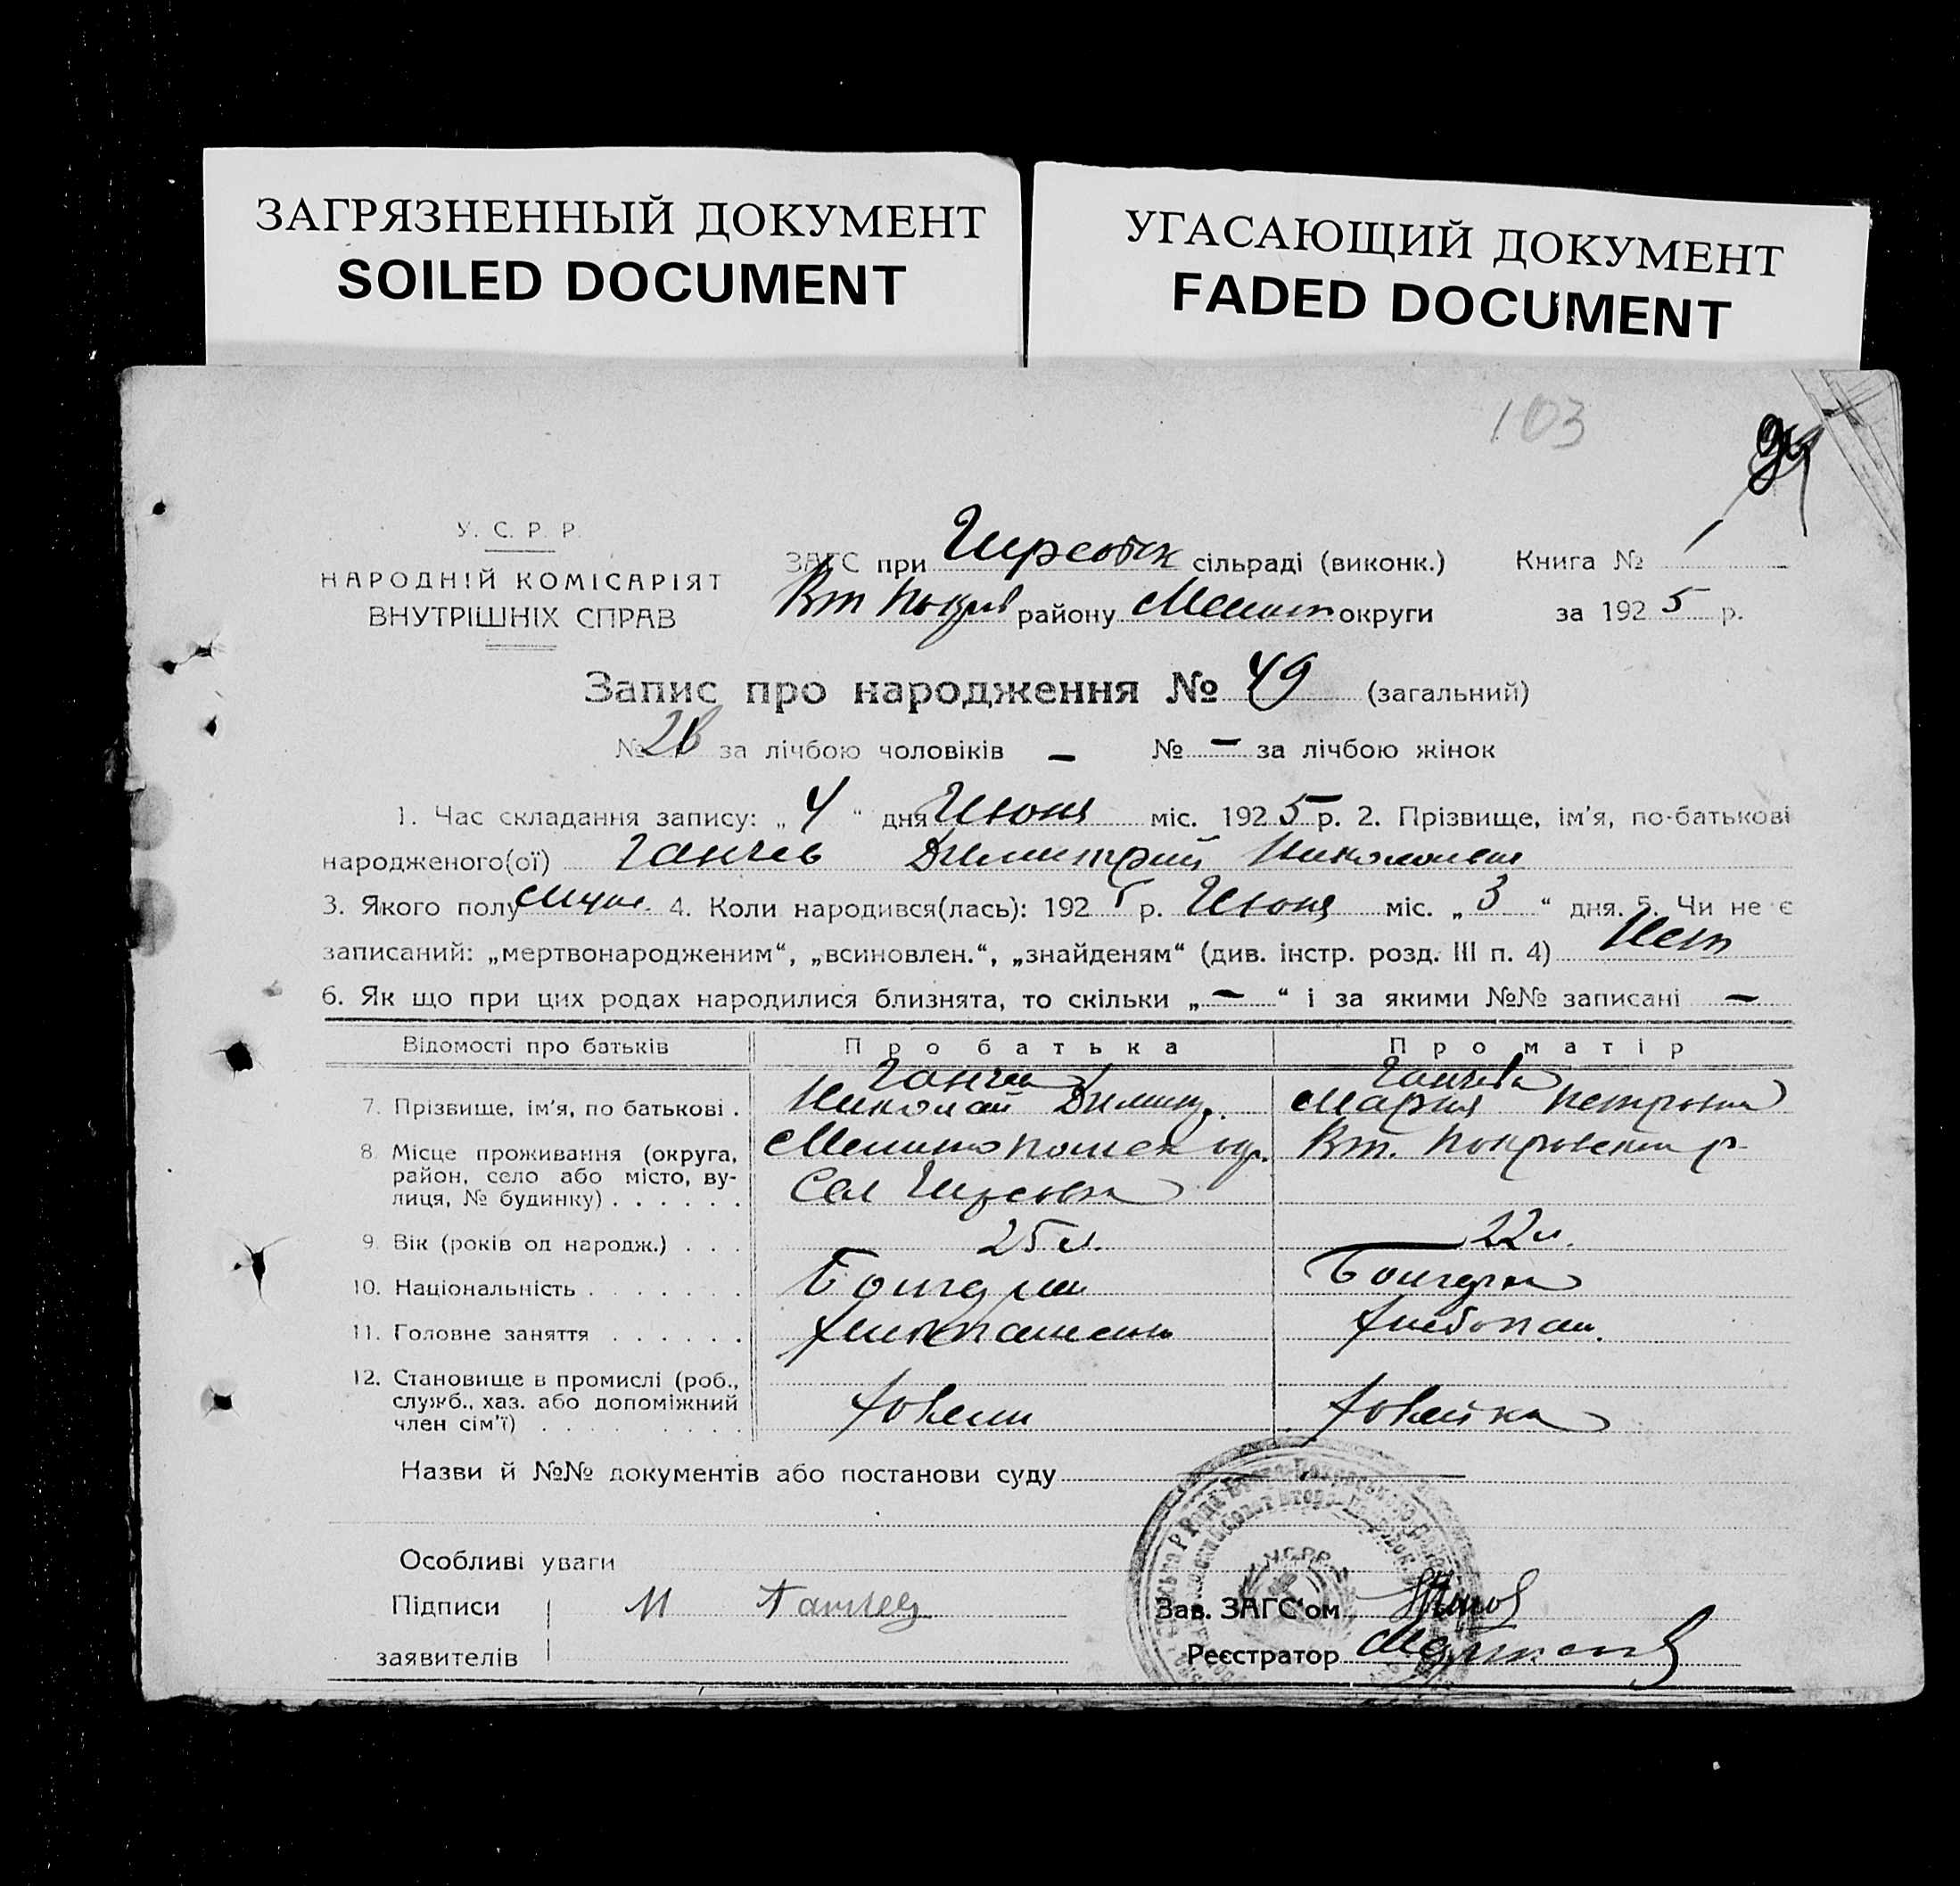 ЗАГРЯЗНЕННЫЙ ДОКУМЕНТ
SOILED DOCUMENT
УГАСАЮЩИЙ ДОКУМЕНТ
FADED DOCUMENT
103
У. С. Р. Р.
НАРОДНІЙ КОМІСАРІЯТ
ВНУТРІШНІХ СПРАВ
ЗАГС при Гирсовск сільраді (виконк.) Книга № 1
Вт Покров району Мелит округи за 1925 р.
Запис про народження № 49 (загальний)
№ за лічбою чоловіків – № – за лічбою жінок
1. Час складання запису: „ 4 “ дня Июня міс. 1925 р. 2. Прізвище, ім'я, по-батькові
народженого(ої) Ганчев Димитрий Николаевич
3. Якого полу муж. 4. Коли народився(лась): 1925 р. Июня міс. „ 3 “ дня. 5. Чи не є
записаний: „мертвонародженим“, „всиновлен.“, „знайденям“ (див. інстр. розд. III п. 4) Нет
6. Як що при цих родах народилися близнята, то скільки „ – “ і за якими №№ записані –
Відомості про батьків Про батька Про матір
Ганчев Ганчева
7. Прізвище, ім'я, по батькові . Николай Димит. Мария Петровна
8. Місце проживання (округа, Мелитопольск окр. Вт. Покровский р
район, село або місто, ву- Сел Гирсовка
лиця, № будинку) . . . . . .
9. Вік (років од народж.) . . . 25 л. 22 л.
10. Національність . . . . . . . Болгарин Болгарка
11. Головне заняття . . . . . . Хлебопашество Хлебопаш.
12. Становище в промислі (роб.,
служб., хаз. або допоміжний Хозяин Хозяйка
член сім'ї) . . . . . . . . .
Назви й №№ документів або постанови суду
Особливі уваги
Підписи Н Ганчев
Зав. ЗАГС'ом
заявителів
Реєстратор
У.С.Р.Р.